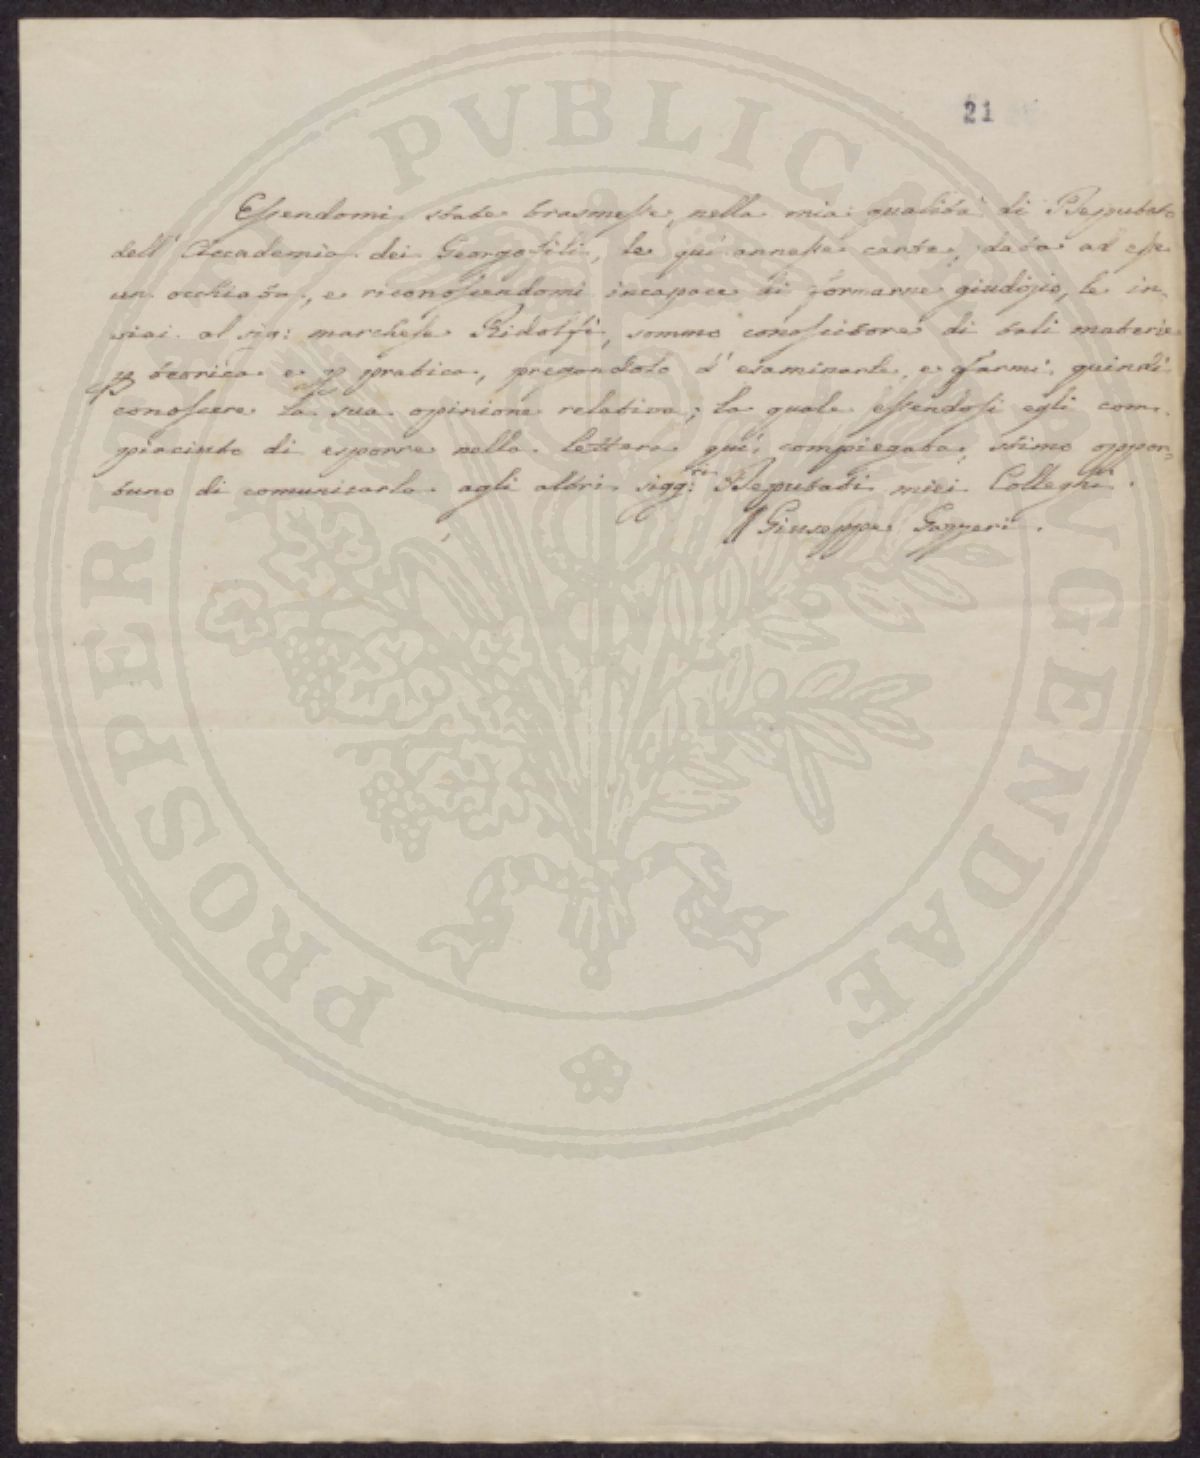 21
Essendomi state trasmesse, nella mia qualità di Deputato
dell' Accademia dei Georgofili, le quì annesse carte, data ad esse
un' occhiata, e riconoscendomi incapace di formarne giudizio, le in-
viai al sig: marchese Ridolfi, sommo conoscitore di tali materie
p teorica e p pratica, pregandolo d' esaminarle, e farmi quindi
conoscere la sua opinione relativa; la quale essendosi egli com-
piaciuto di esporre nella lettera quì compiegata, stimo oppor=
tuno di comunicarla agli altri sigg:ri Deputati miei Colleghi.
Giuseppe Gazzeri.
PROSPERITATI PVBLICAE AVGENDAE